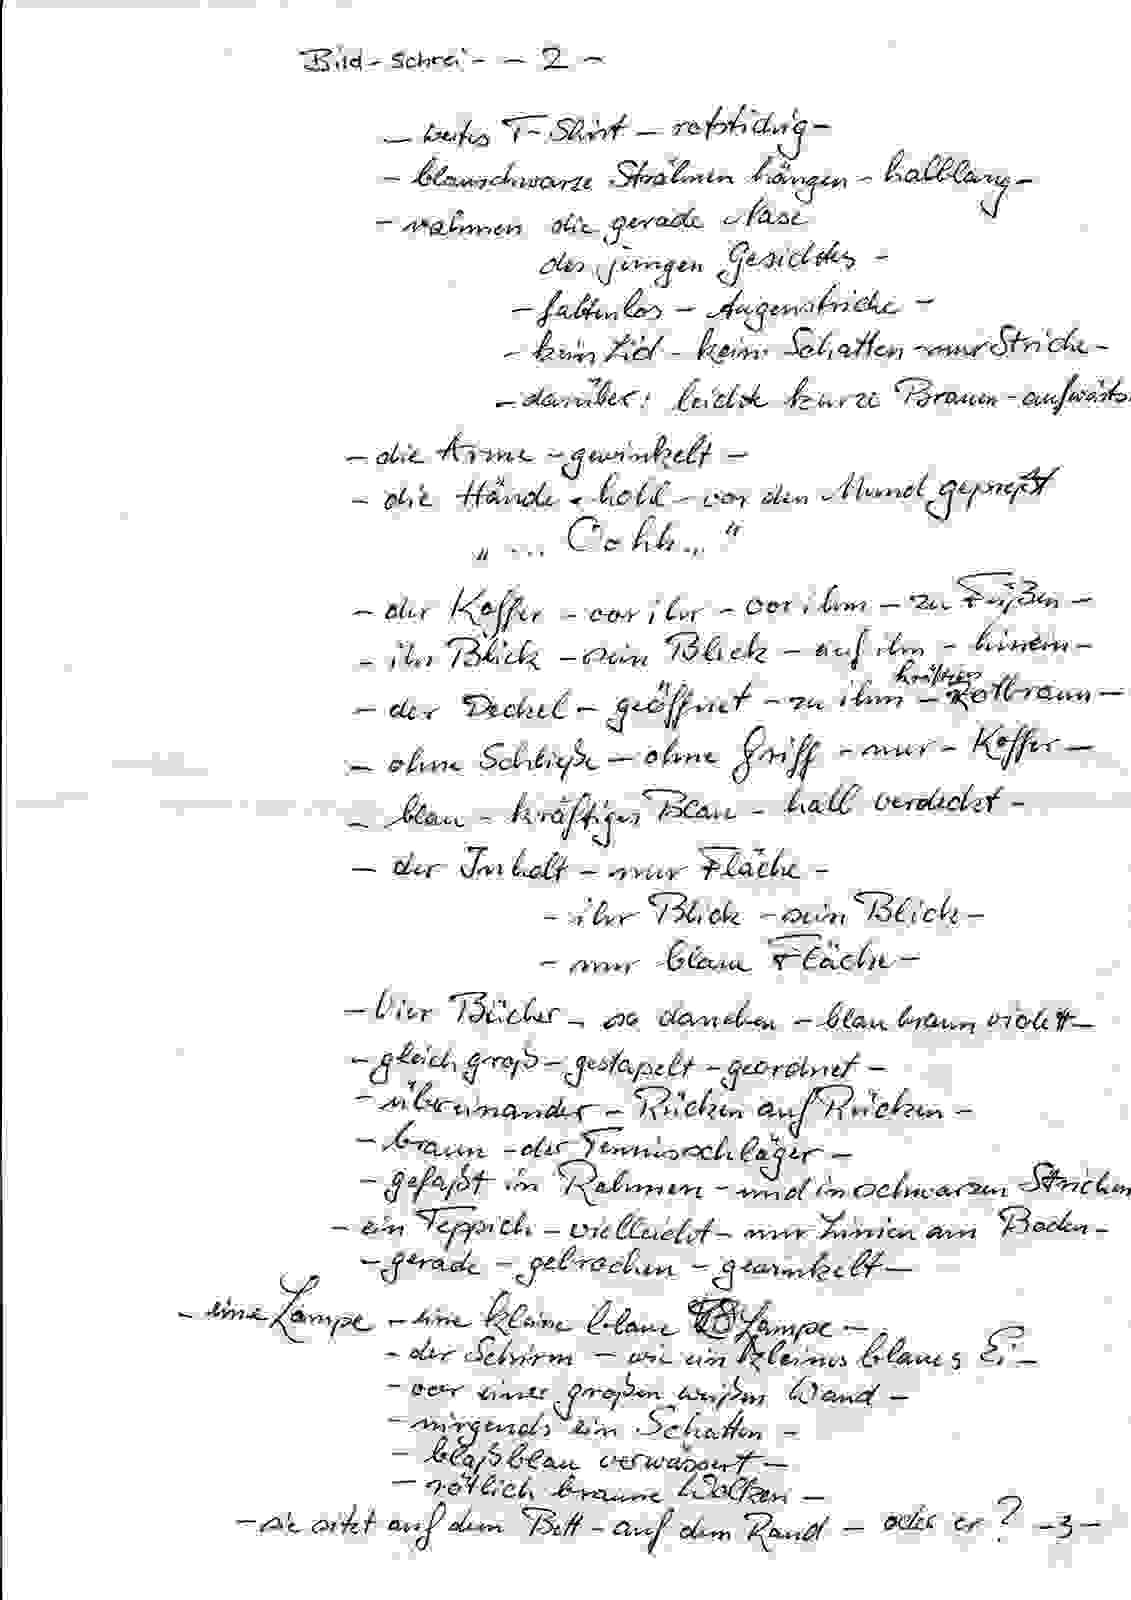 Bild-schrei - - 2 -
- weites T-Shirt - rotstichig -
- blauschwarze Strähnen hängen - halblang -
- rahmen die gerade Nase
des jungen Gesichtes -
- faltenlos - Augenstriche -
- kein Lid - kein Schatten - nur Striche -
- darüber: leichte kurze Brauen - aufwärts
- die Arme - gewinkelt -
- die Hände - hohl - vor den Mund gepreßt
„ ... Oohh... "
- der Koffer - vor ihr - vor ihm - zu Füßen -
- ihr Blick - sein Blick - auf ihn - hinein -
- der Deckel - geöffnet - zu ihm - kräftiges Rotbraun -
- ohne Schließe - ohne Griff - nur - Koffer -
- blau - kräftiges Blau - halb verdeckt -
- der Inhalt - nur Fläche -
- ihr Blick - sein Blick -
- nur blaue Fläche -
- Vier Bücher - so daneben - blau braun violett -
- gleich groß - gestapelt - geordnet -
- übereinander - Rücken auf Rücken -
- braun - der Tennisschläger -
- gefaßt in Rahmen - und in schwarzen Strichen
- ein Teppich - vielleicht - nur Linien am Boden -
- gerade - gebrochen - gewinkelt -
- eine Lampe - eine kleine blaue Lampe -
- der Schirm - wie ein kleines blaues Ei -
- vor einer großen weißen Wand -
- nirgends ein Schatten -
- blaßblau verwässert -
- rötlich braune Wolken -
- sie sitzt auf dem Bett - auf dem Rand - oder er? - 3 -